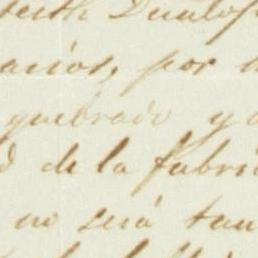 Dunlop
acios, por
quebrado y
d de la fabri
no será tan